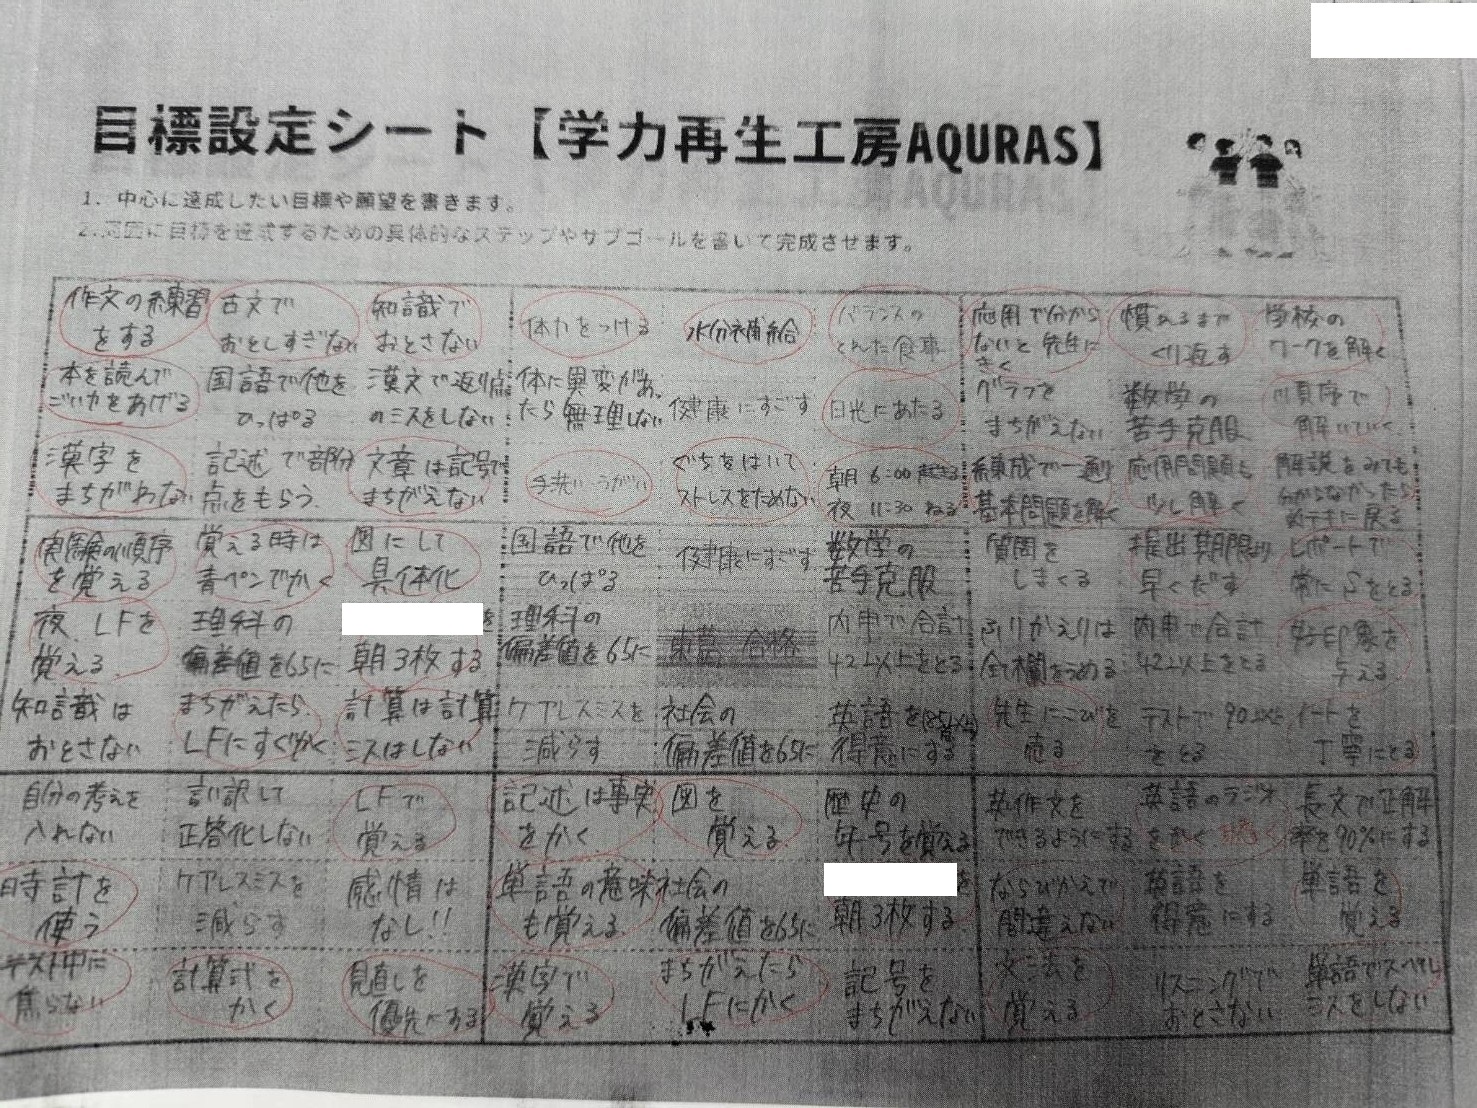 目標設定シート【学力再生工房AQURAS】
1. 中心に達成したい目標や願望を書きます。
2.周囲に目標を達成するための具体的なステップやサブゴールを書いて完成させます。
作文の練習
をする
古文で
おとしすぎない
知識で
おとさない
体力をつける
水分補給
バランスの
とれた食事
応用で分から
ないと先生に
きく
慣れるまで
くり返す
学校の
ワークを解く
本を読んで
ごい力をあげる
国語で他を
ひっぱる
漢文で返り点
のミスをしない
体に異変があ
たら無理しない
健康にすごす
日光にあたる
グラフを
まちがえない
数学の
苦手克服
順序で
解いていく
漢字を
まちがわない
記述で部分
点をもらう
文章は記号で
まちがえない
手洗いうがい
ぐちをはいて
ストレスをためない
朝 6:00 起きる
夜 11:30 ねる
練成で一通り
基本問題を解く
応用問題も
少し解く
解説をみても
分からなかったら
戻る
実験の順序
を覚える
覚える時は
青ペンでかく
図にして
具体化
国語で他を
ひっぱる
健康にすごす
数学の
苦手克服
質問を
しまくる
提出期限より
早くだす
レポートで
常にSをとる
夜 LFを
覚える
理科の
偏差値を65に
を
朝3枚する
理科の
偏差値を65に
合格
内申で合計
42以上をとる
ふりかえりは
全て欄をうめる
内申で合計
42以上をとる
好印象を
与える
知識は
おとさない
まちがえたら
LFにすぐかく
計算は計算
ミスはしない
ケアレスミスを
減らす
社会の
偏差値を65に
英語を
得意にする
先生にこびを
売る
テストで90以上
をとる
ノートを
丁寧にとる
自分の考えを
入れない
言い訳して
正答化しない
LFで
覚える
記述は事実
をかく
図を
覚える
歴史の
年号を覚える
英作文を
できるようにする
英語のラジオ
をきく
長文で正解
率を90%にする
時計を
使う
ケアレスミスを
減らす
感情は
なし!!
単語の意味
も覚える
社会の
偏差値を65に
を
朝3枚する
ならびかえで
間違えない
英語を
得意にする
単語を
覚える
テスト中に
焦らない
計算式を
かく
見直しを
優先にする
漢字で
覚える
まちがえたら
LFにかく
記号を
まちがえない
文法を
覚える
リスニングで
おとさない
単語でスペル
ミスをしない